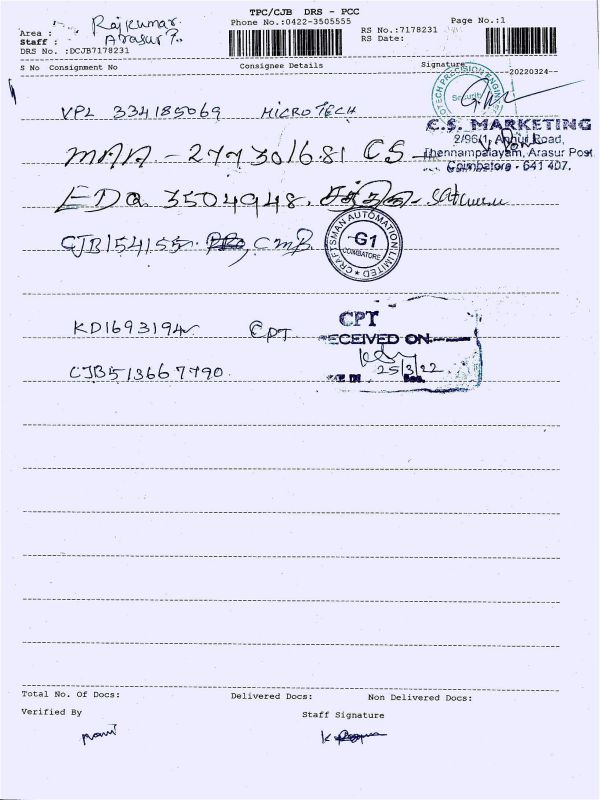 TPC/CJB DRS - PCC
Phone No.:0422-3505555
Page No.:1
Area :
Rajkumar
Staff :
Arasur P.
RS No.:7178231
RS Date:
DRS No. :DCJB7178231
S No Consignment No Consignee Details Signature
20220324
VPL 334185069 MICROTECH
Security
C.S. MARKETING
2/96/1, Road,
Thennampalayam, Arasur Post
Coimbatore - 641 407.
MAA - 277301681 CS
EDQ 3504948
CRAFTSMAN AUTOMATION LIMITED
G1
COIMBATORE
CJB154155 CMB
KD1693194 CPT
CPT
RECEIVED ON
25/3/22
CJB513667790
Total No. Of Docs: Delivered Docs: Non Delivered Docs:
Verified By Staff Signature